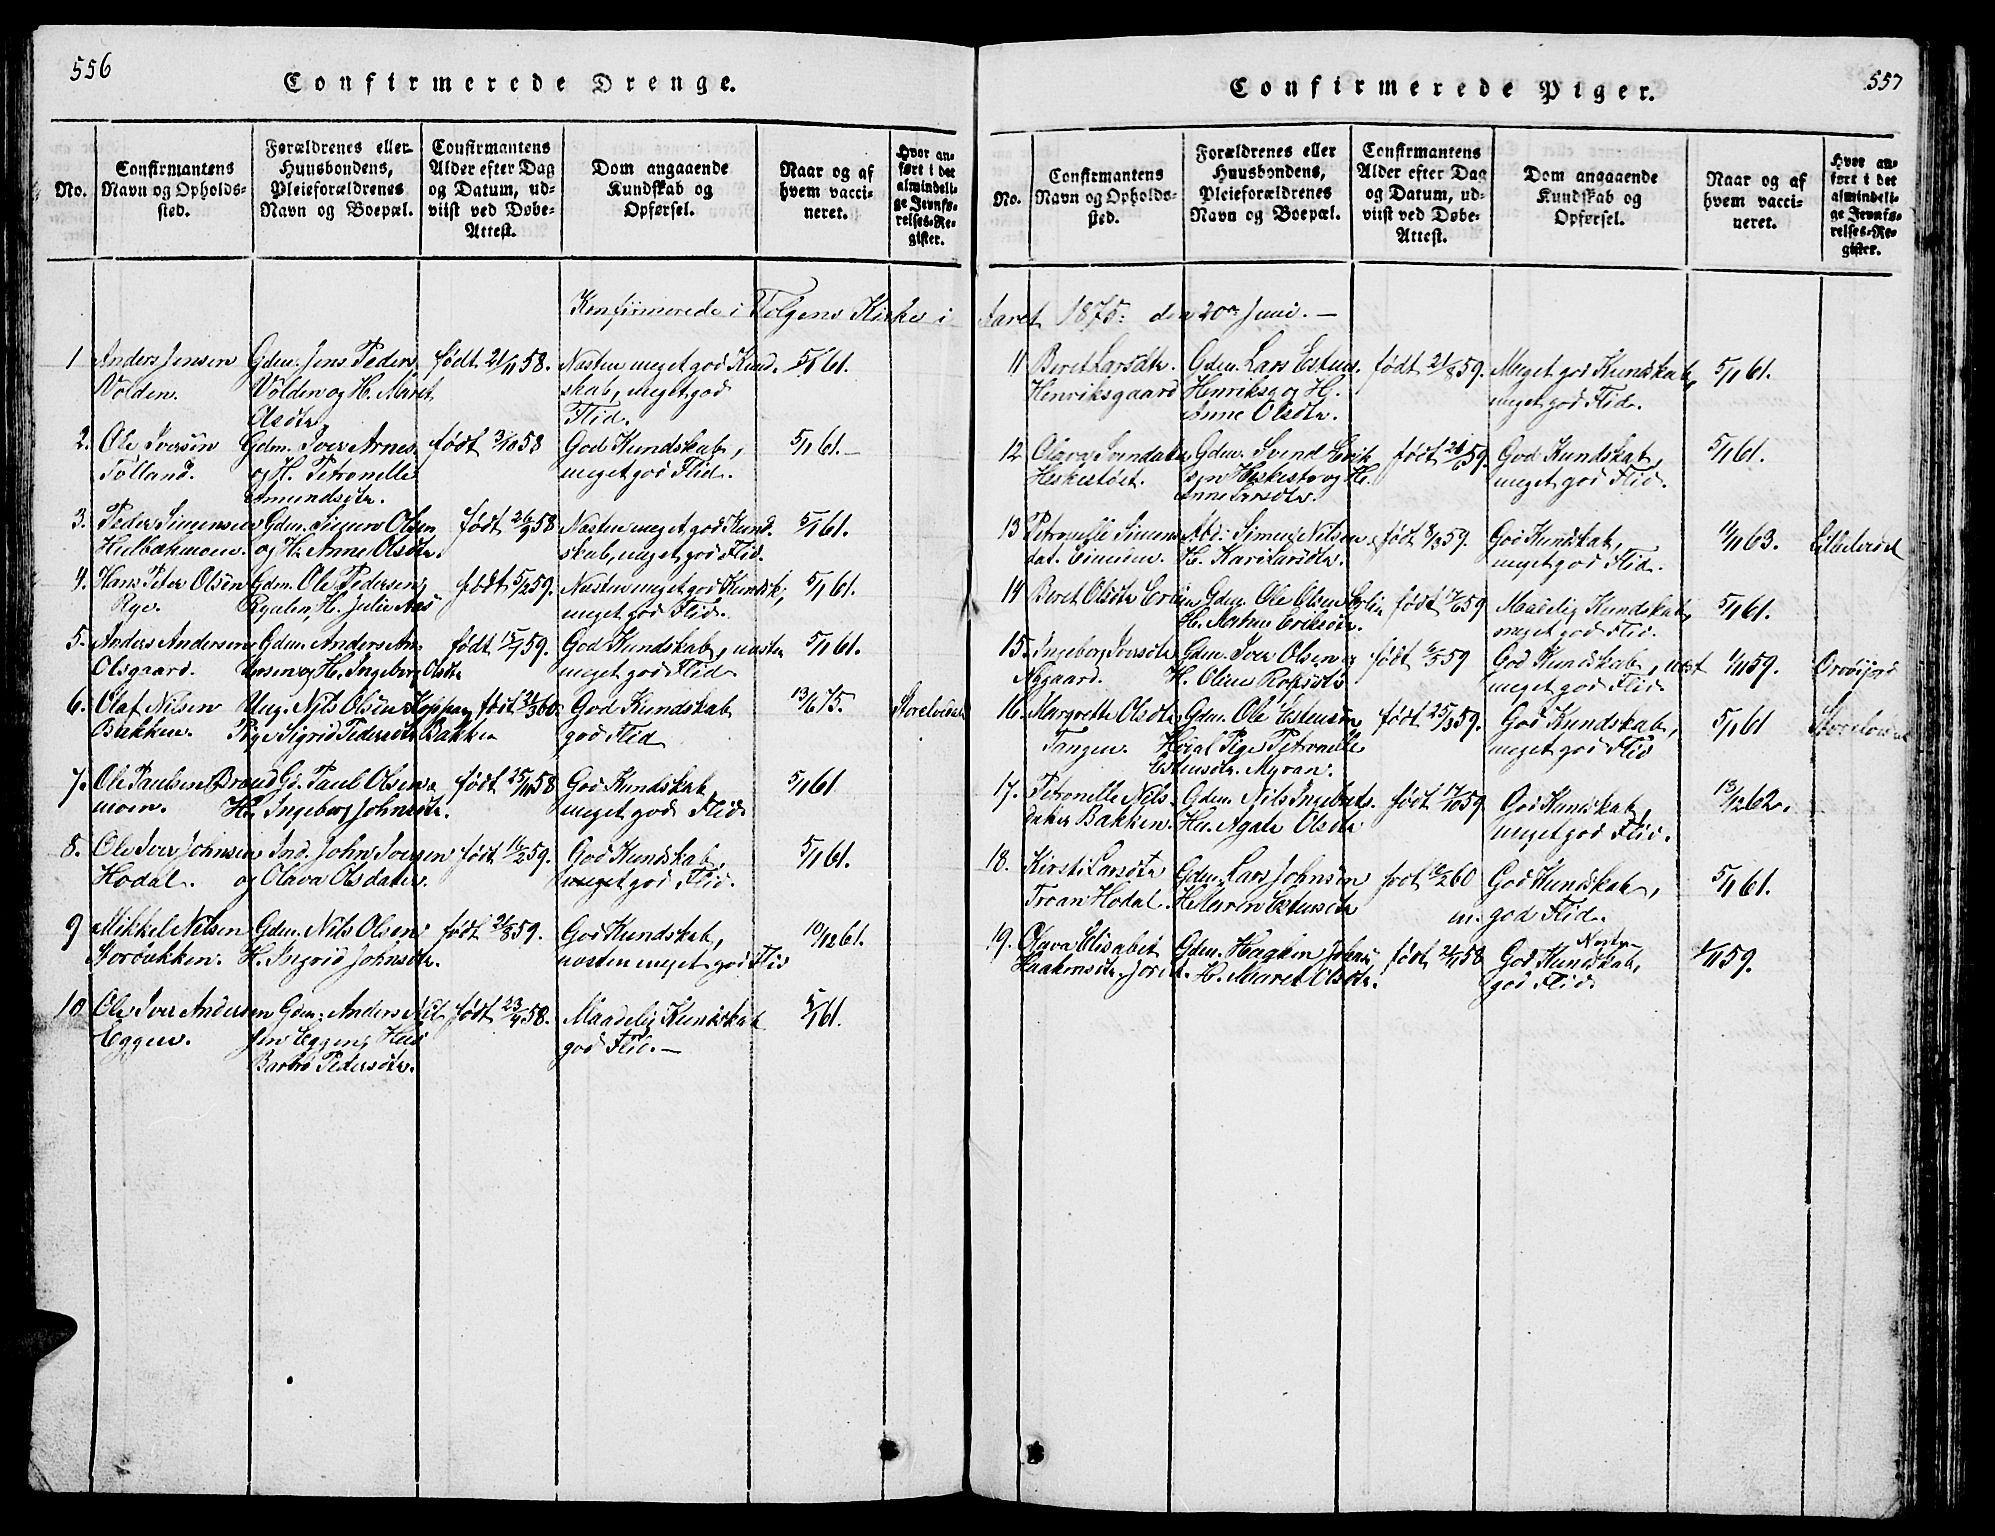 556
Confirmerede Drenge.
No.
Confirmantens
Navn og Opholds-
sted.
Forældrenes eller
Huusbondens,
Pleieforældrenes
Navn og Boepæl.
Confirmantens
Alder efter Dag
og Datum, ud-
viist ved Døbe-
Attest.
Dom angaaende
Kundskab og
Opførsel.
Naar og af
hvem vacci-
neret.
Hvor an-
ført i det
almindeli-
ge Jevnfø-
relses-Re-
gister.
Konfirmerede i Tolgens Kirke i
1 Anders Jensen Gdm. Jens Peders. født 21/11 58. Næsten meget god Kund- 5/1 61.
Volden. Volden og H. Maret skab, meget god
Olsdtr. Flid.
2. Ole Iversen Gdm. Iver Arnes. født 3/10 58 God Kundskab, 5/1 61.-
Tolland. og H. Petronelle meget god Flid.
Esmundsdtr.
3. Peder Simensen Gdm. Simen Olsen født 26/9 58 Næsten meget god Kund- 5/1 61.
Hulbækmoen. og H. Anne Olsdtr. skab, meget god Flid.
4. Hans Peter Olsen Gdm. Ole Pedersen født 5/2 59. Næsten meget god Kundsk., 5/1 61.
Rye. Ryalen, H. Julie meget god Flid.
5. Anders Andersen Gdm. Anders An- født 15/7 59. God Kundskab, næsten 5/1 61.
Olsgaard. dersen og H. Ingeborg Olsdtr meget god Flid
6. Olaf Nilsen Ung. Nils Olsen Koppang født 60. God Kundskab 13/6 75. Storelvedal
Bakken. Pige Sigrid Pedersdtr Bakken god Flid
7. Ole Paulsen Brænd Gd. Paul Olsen født 25/11 58 God Kundskab 5/1 61.
moen. H. Ingeborg Johnsdtr. meget god Flid
8. Ole Iver Johnsen Ind. John Iversen født 16/2 59. God Kundskab, 5/1 61.
Hodal. og Olava Olsdater. meget god Flid.
9 Mikkel Nilsen Gdm. Nils Olsen født 21/8 59. God Kundskab, 10/12 61.
Storbækken. H. Ingrid Johnsdtr. næsten meget god Flid
10 Ole Iver Andersen Gdm. Anders Nil- født 23/4 58. Maadelig Kundskab 5/1 61.
Eggen. sen Eggen, Hu. god Flid.-
Barbro Pedersdtr.
557
Confirmerede Piger.
No.
Confirmantens
Navn og Opholds-
sted.
Forældrenes eller
Huusbondens,
Pleieforældrenes
Navn og Boepæl.
Confirmantens
Alder efter Dag
og Datum, ud-
viist ved Døbe-
Attest.
Dom angaaende
Kundskab og
Opførsel.
Naar og af
hvem vacci-
neret.
Hvor an-
ført i det
almindeli-
ge Jevnfø-
relses-Re-
gister.
Aaret 1875: den 20de Juni.-
11 Beret Larsdtr. Gdm. Lars Estens. født 21/8 59. Meget god Kundskab, 5/1 61.
Henriksgaard Henriksg og H. meget god Flid.
Anne Olsdtr.
12 Olava Svendsdater Gdm. Svend Erik- født 59. God Kundskab, 5/1 61.
Heskestøet. sen Heskestø og H. meget god Flid.
Anne Larsdtr.
13 Petronelle Simens- Simen Nilsen født 8/3 59. God Kundskab, 11/11 63. Lilleelvedal
dat. H. Kari Larsdtr. meget god Flid.
14 Beret Olsdtr Erlien Gdm. Ole Olsen Erlien født 59 Maadelig Kundskab, 5/1 61.
H. Marthe Eriksdtr. meget god Flid.
15. Ingeborg Iversdtr Gdm. Iver Olsen og født 59 God Kundskab, næst 1/11 59.
Aasgaard. H. Oline meget god Flid.
16. Margrethe Olsdtr Gdm. Ole Estensen født 25/3 59. God Kundskab, 5/1 61 Storelvedal
Tangen. Hodal Pige Petronelle meget god Flid
Estensdtr. Myran.
17. Petronelle Nils- Gdm. Nils Ingebrets. født 17/10 59 God Kundskab, 13/12 62.
dater Bakken. Hu. Agate Olsdtr meget god Flid.
18. Kirsti Larsdtr Gdm. Lars Johnsen født 60 God Kundskab, 5/1 61.
Troan Hodal. H. Maren Estensdtr m. god Flid.
19. Olava Elisabet Gdm. Haakon Johns. født 58 God Kundskab, 59.
Haakonsdtr. Jordet. H. Maret Olsdtr. god Flid.